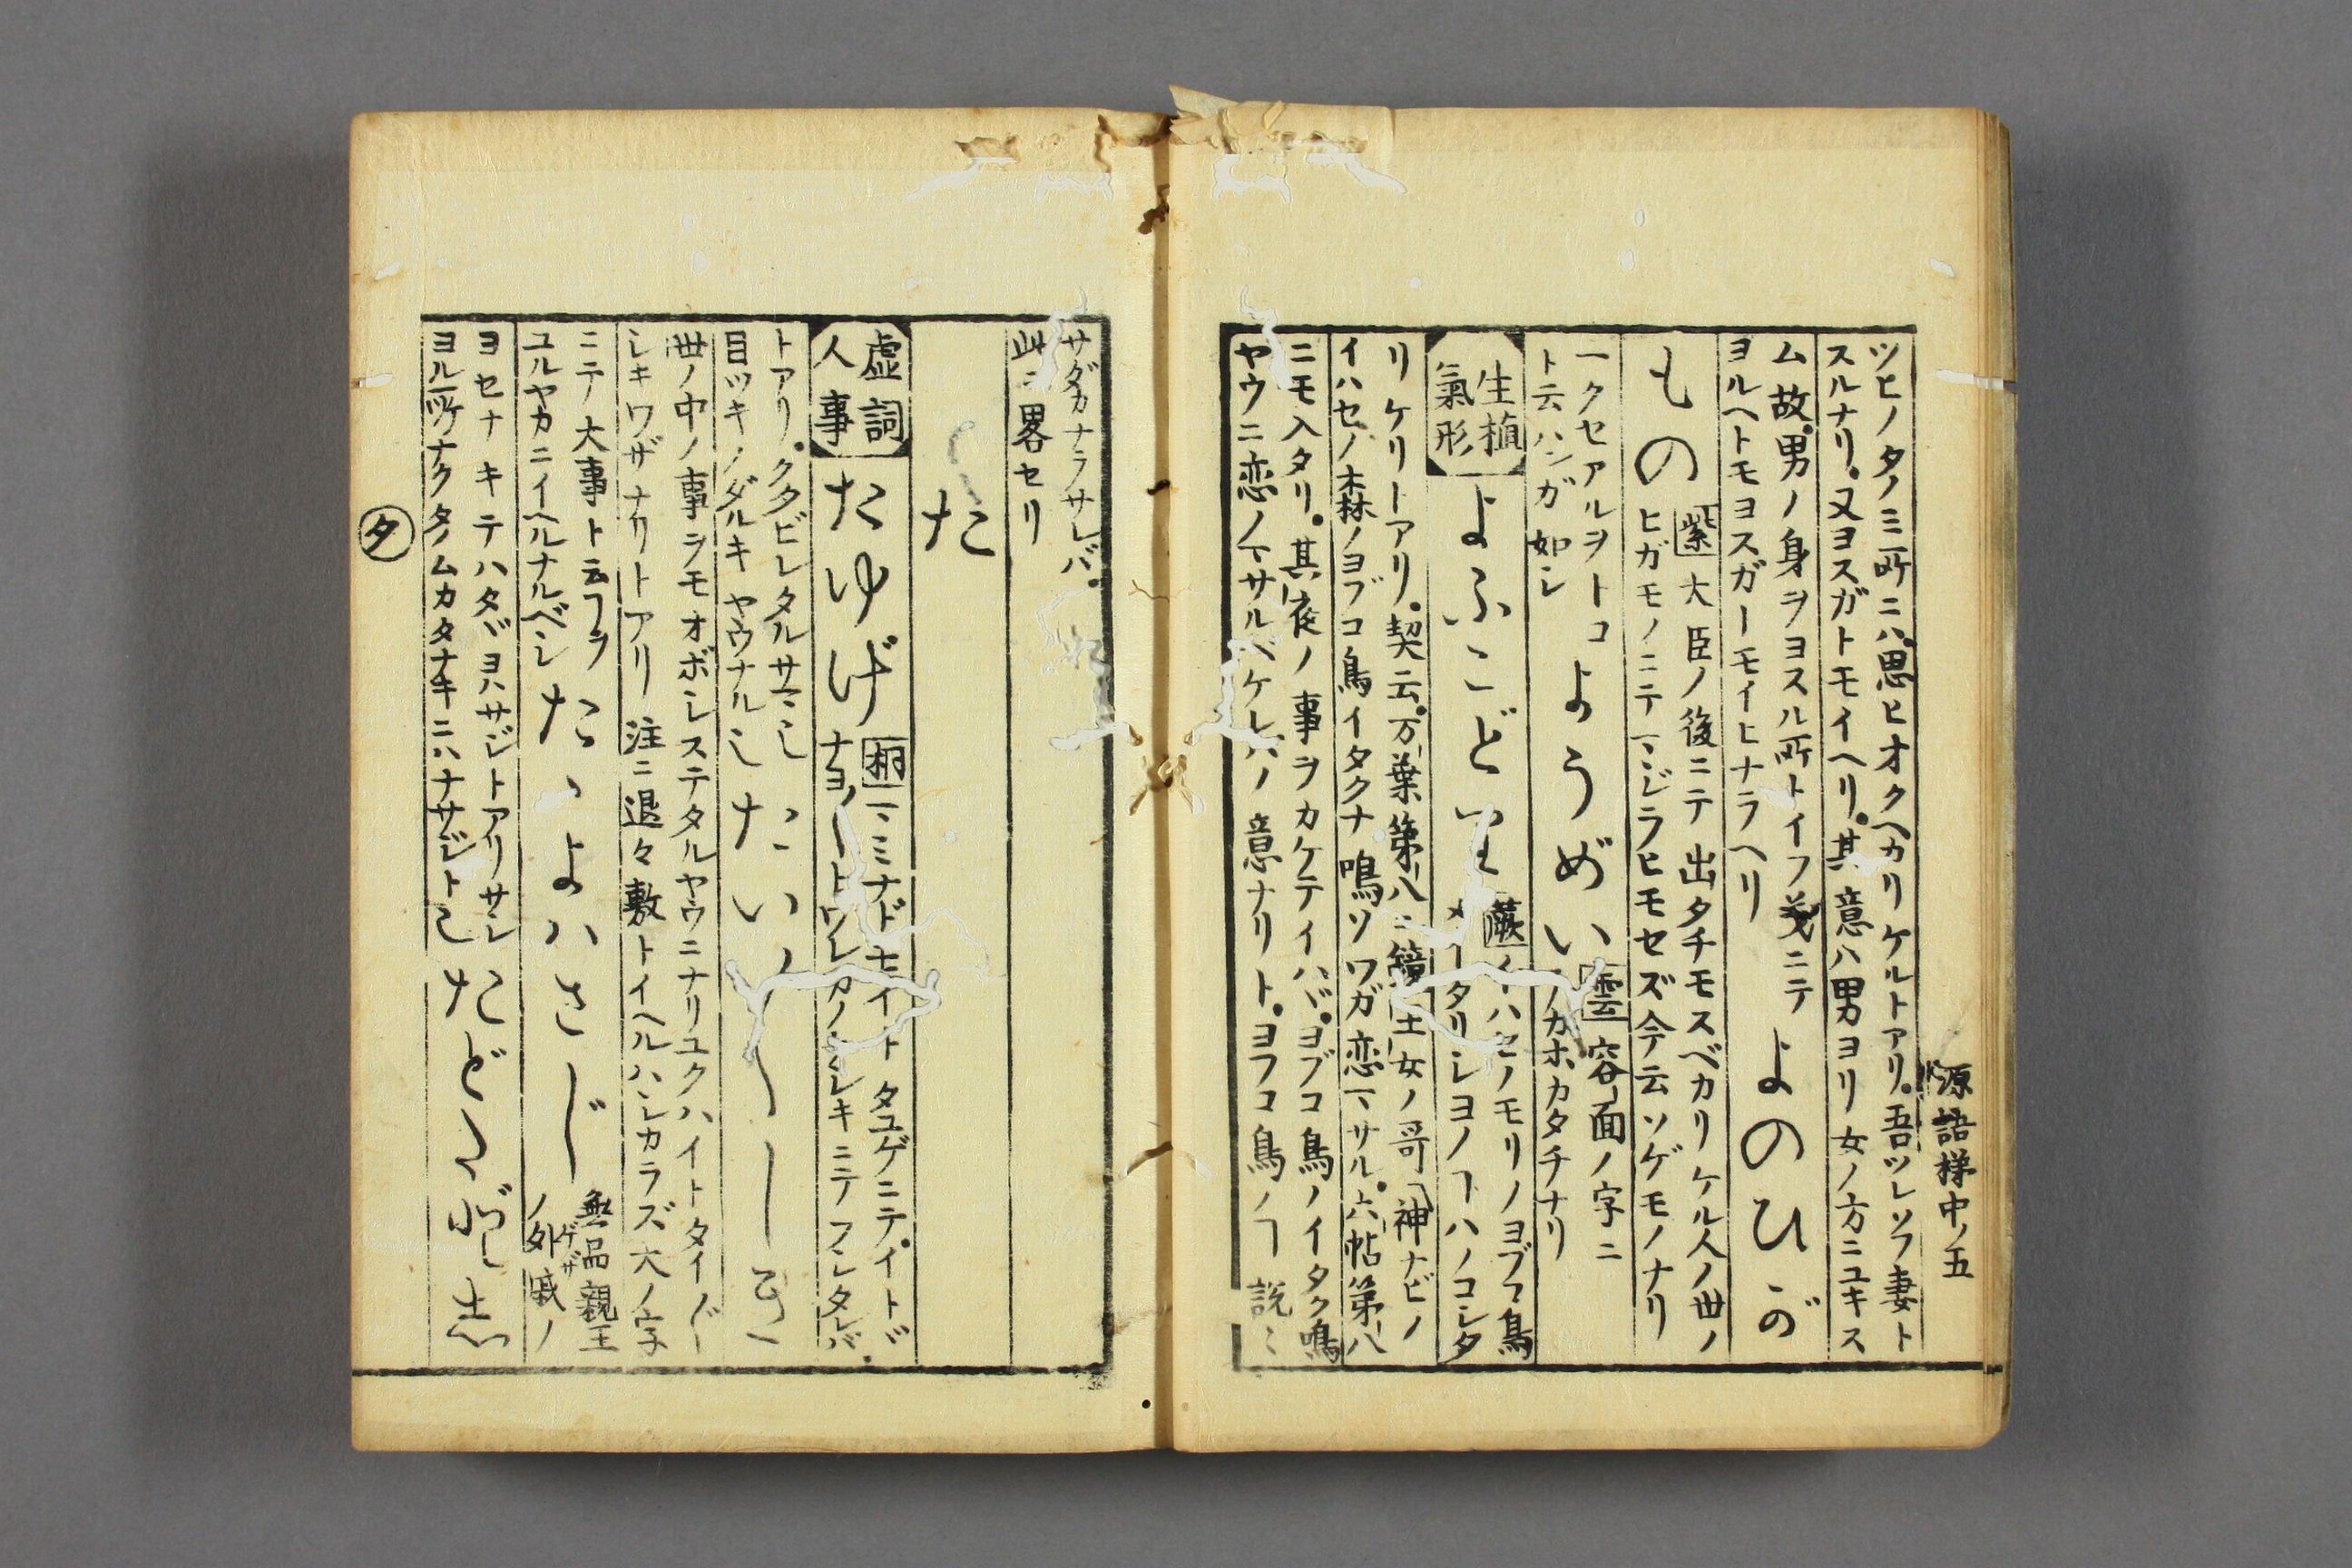 源語梯中ノ五
ツヒノタノミ所ニハ思ヒオクヘカリケルトアリ。吾ツレソフ妻ト
スルナリ。又ヨスガトモイヘリ。其意ハ男ヨリ女ノ方ニユキス
ム故。男ノ身ヲヨスル所トイフ義ニテ
ヨルヘトモヨスガトモイヒナラヘリ
よのひが
もの
紫 大臣ノ後ニテ出タチモスベカリケル人ノ世ノ
ヒガモノニテマジラヒモセズ今云ソゲモノナリ
一クセアルヲトコ
ト云ハンガ如シ
ようめい
雲 容面ノ字ニ
カホカタチナリ
生植
氣形
よふこどり
蕨 イハセノモリノヨブコ鳥
メキタリシヨノヿハノコシタ
リケリトアリ。契云。万葉第八ニ鏡王女ノ哥「神ナビノ
イハセノ森ノヨブコ鳥イタクナ鳴ソワガ恋マサル。六帖第八
ニモ入タリ。其夜ノ事ヲカケテイハバ。ヨブコ鳥ノイタク鳴
ヤウニ恋ノマサルベケレバノ意ナリト。ヨフコ鳥ノヿ説〻
サダカナラサレバ。
此ニ畧セリ
た
虚詞
人事
たゆげ
桐 マミナドモイトタユゲニテ。イトド
ナヨ〳〵トワレカノケシキニテフシタレバ
トアリ。クタビレタルサマニ
目ツキノダルキヤウナル
たい〴〵しき
世ノ中ノ事ヲモオボシステタルヤウニナリユクハイトタイ〴〵
シキワザナリトアリ 注ニ退々敷トイヘルハシカラズ大ノ字
ニテ大事ト云ヿヲ
ユルヤカニイヘルナルベシ
たゝよハさじ
無品親王
ノ外戚ノ
ゲザ
ヨセナキテハタヾヨハサジトアリサシ
ヨル所ナクタノムカタナキニハナサジト
たど〳〵し
タ